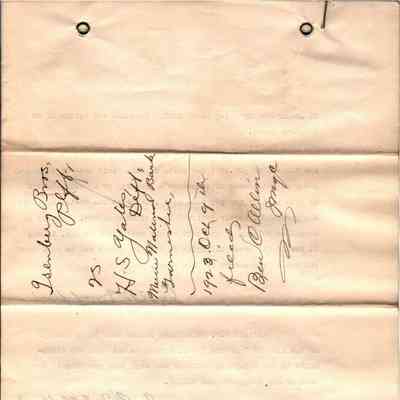 Isenberg Bros,
Plff,
vs
H S Yates
Deft,
National Bank
Garnishee,
1923, Oct 9 th
filed
Ben C Allin
Judge